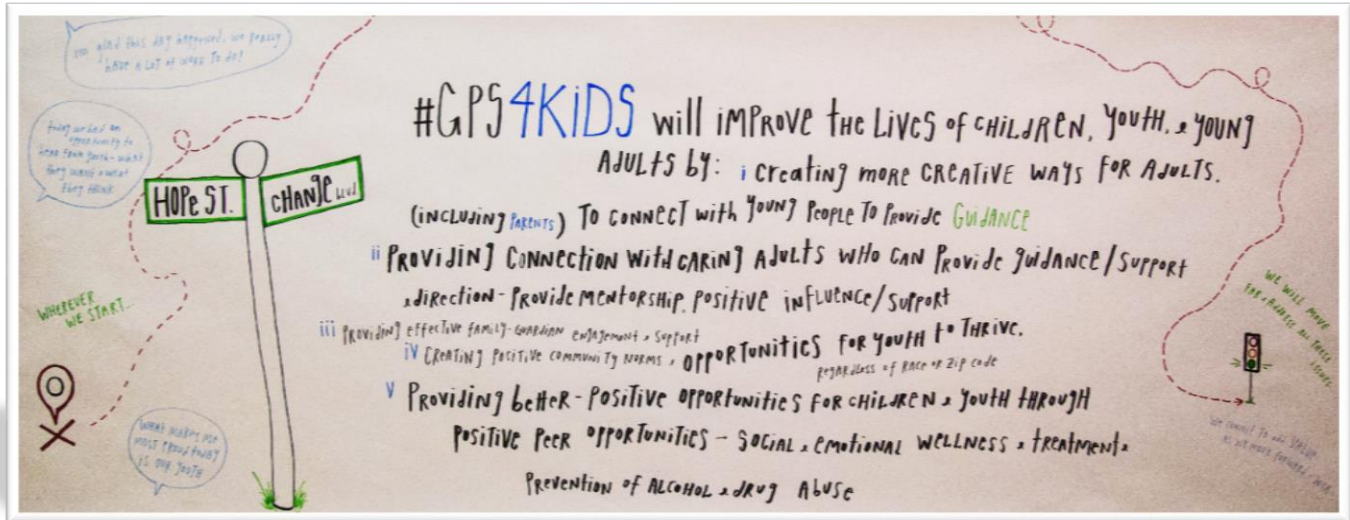 glad this day happened, we really
have a lot of work to do!
today we had an
opportunity to
hear from youth - what
they want & what
they think
HOPE ST.
CHANGE blvd
WHEREVER
WE START...
WHAT MAKES ME
MOST PROUD TODAY
IS OUR YOUTH
#GPS4KiDS will iMPROVE the Lives of CHiLDREN, YOUTH, & YOUNG
ADULTS by: i Creating MORE CREATIVE WAYS FOR ADULTS.
(iNCLUDiNG PARENTS) TO CONNECT with YOUNG PEOPLE TO PROViDE GUiDANCE
ii PROViDiNG CONNECTiON WiTH CARiNG ADULTS WHO CAN PROViDE GUiDANCE/SUPPORT
& DiRECTiON - PROViDE MENTORSHiP, POSiTiVE iNFLUENCE/SUPPORT
iii PROViDiNG EFFECTiVE FAMiLY-GUARDiAN ENGAGEMENT & SUPPORT
iv CREATiNG POSiTiVE COMMUNiTY NORMS & OPPORTUNiTiES FOR YOUTH to THRiVE.
REGARDLESS OF RACE OR ZiP CODE
v PROViDiNG bEttER - POSiTiVE OPPORTUNiTiES FOR CHiLDREN & YOUTH THROUGH
POSiTiVE PEER OPPORTUNiTiES - SOCiAL & EMOTiONAL WELLNESS & TREATMENT &
PREVENTiON OF ALCOHOL & DRUG ABUSE
WE WiLL MOVE
FOR & ADDRESS ALL THESE
ISSUES
We commit to add
as we move forward